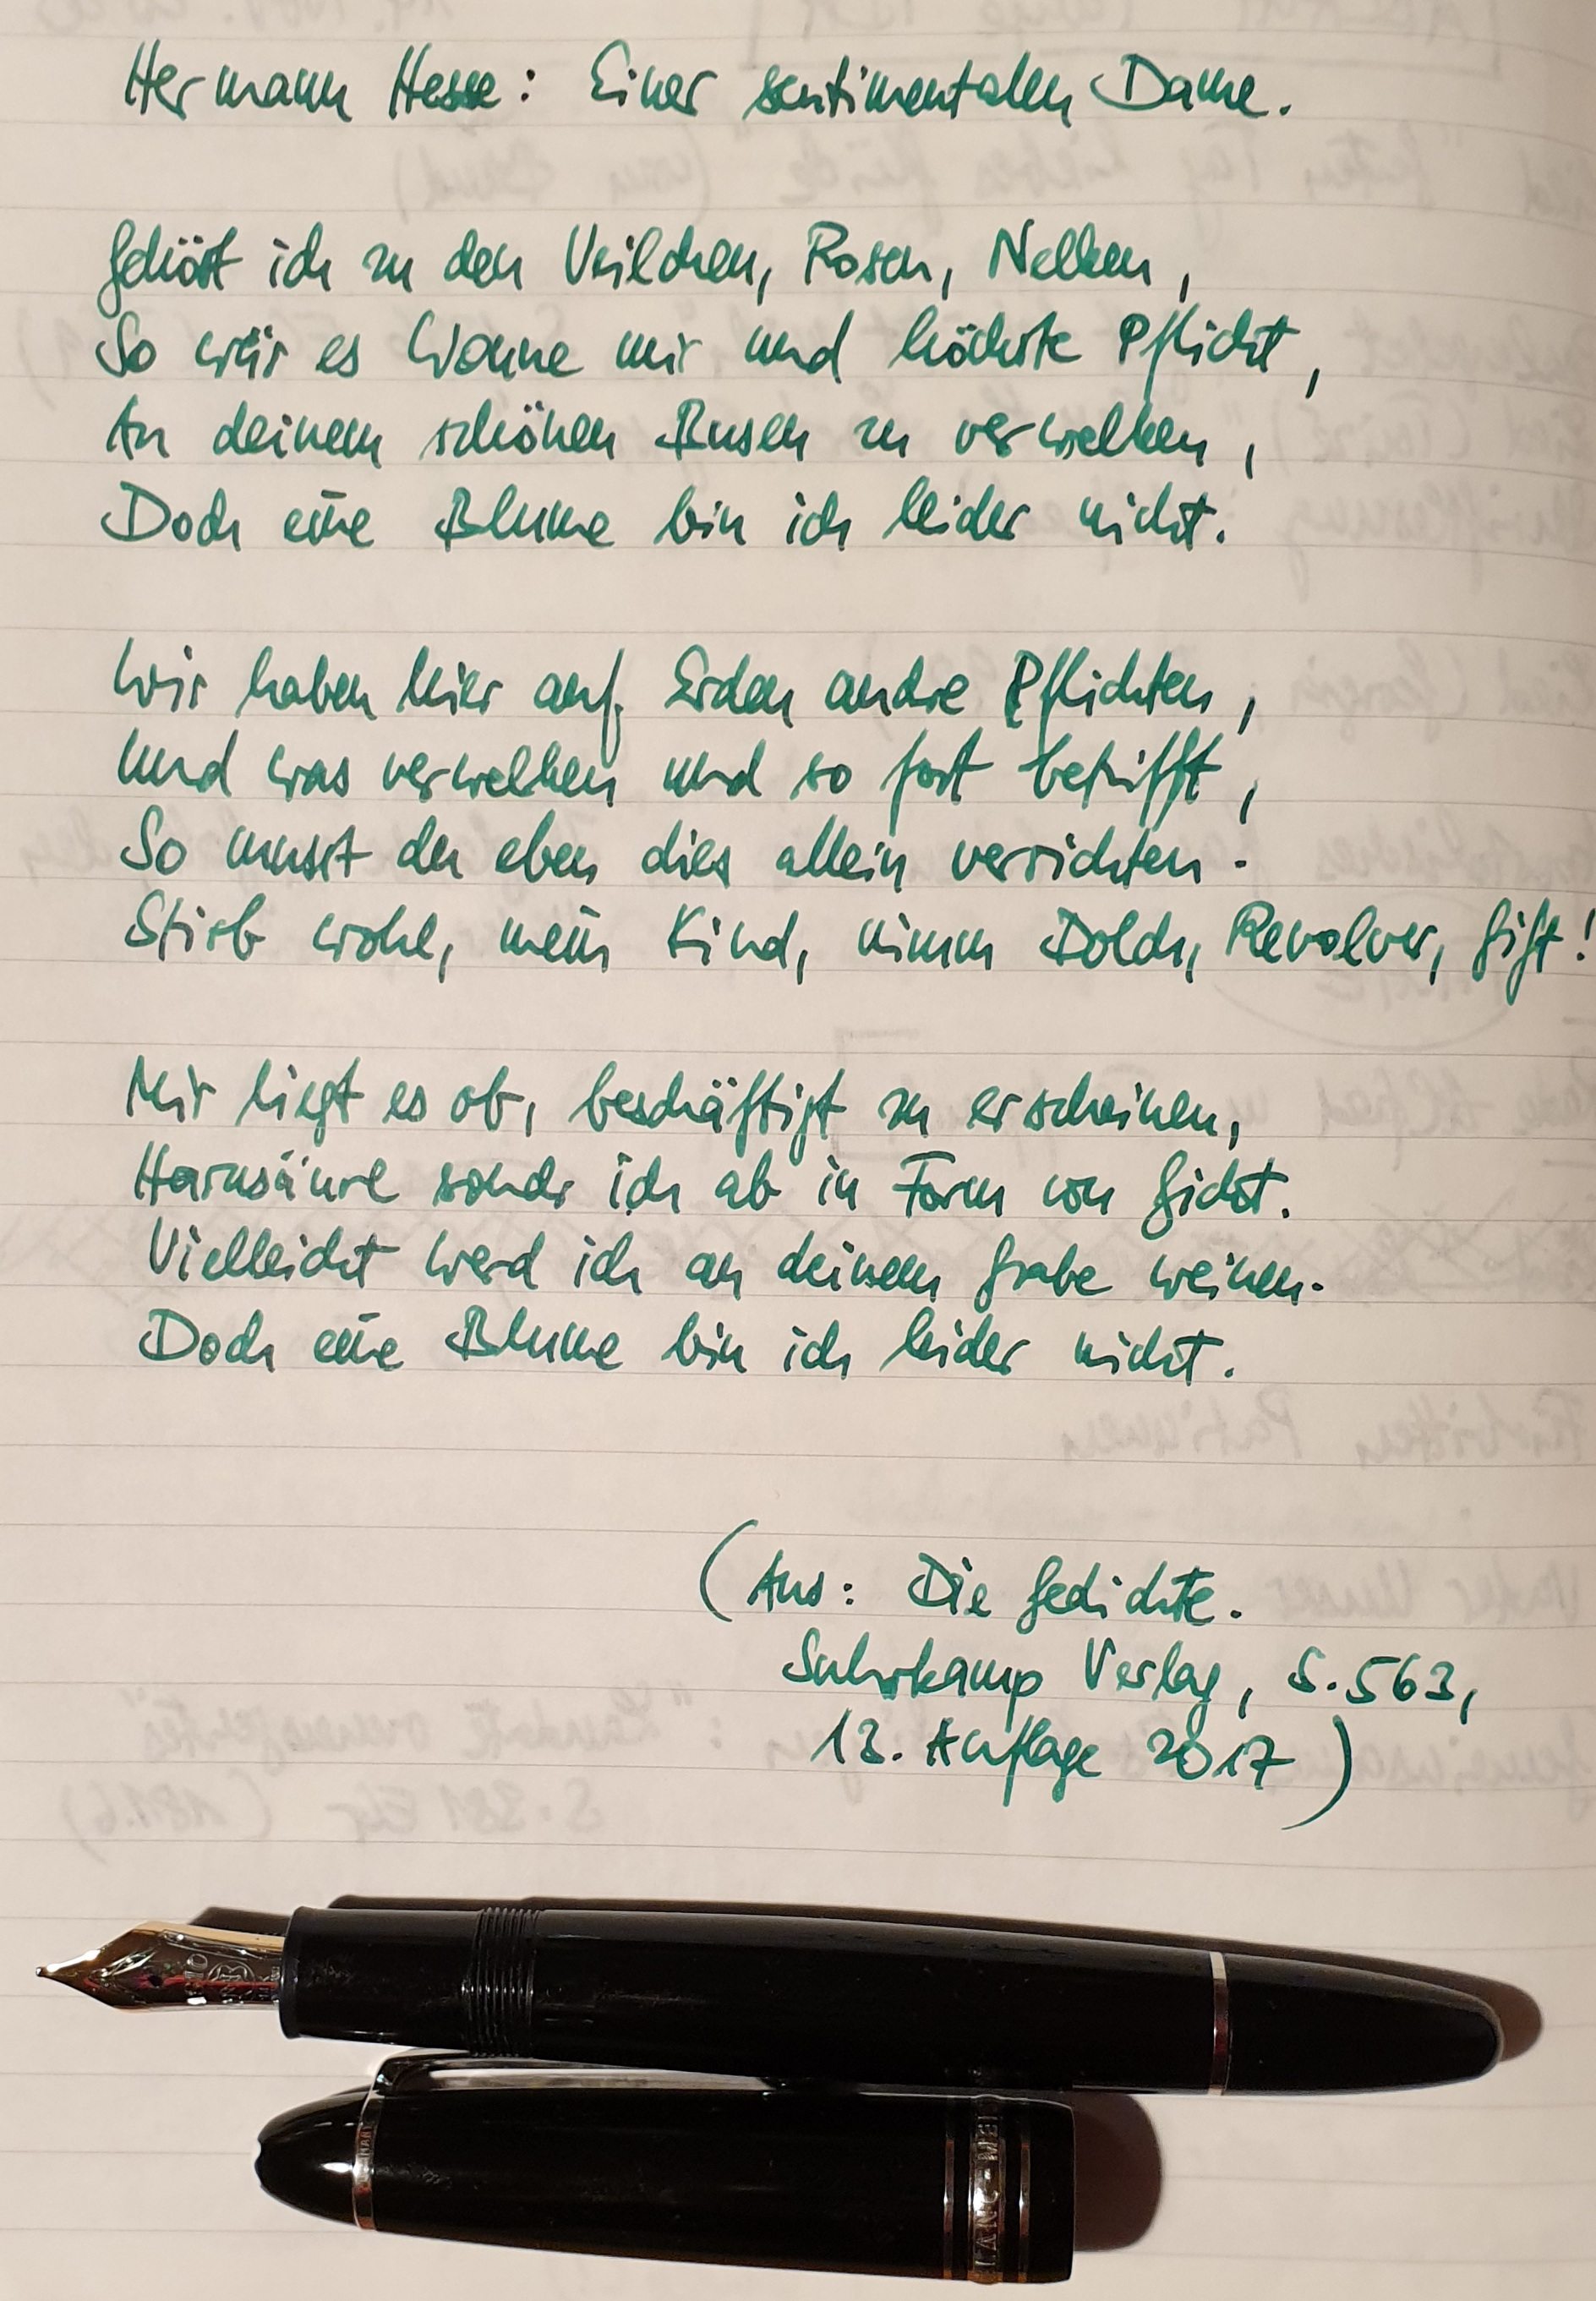 Hermann Hesse: Einer sentimentalen Dame.
Gehört ich zu den Veilchen, Rosen, Nelken,
So wär es Wonne mir und höchste Pflicht,
An deinem schönen Busen zu verwelken,
Doch eine Blume bin ich leider nicht.
Wir haben hier auf Erden andre Pflichten,
Und was verwelken und so fort betrifft,
So musst du eben dies allein verrichten.
Stirb wohl, mein Kind, nimm Dolch, Revolver, Gift!
Mir liegt es ob, beschäftigt zu erscheinen,
Harnsäure sondr ich ab in Form von Gicht.
Vielleicht werd ich an deinem Grabe weinen.
Doch eine Blume bin ich leider nicht.
(Aus: Die Gedichte.
Suhrkamp Verlag, S. 563,
13. Auflage 2017)